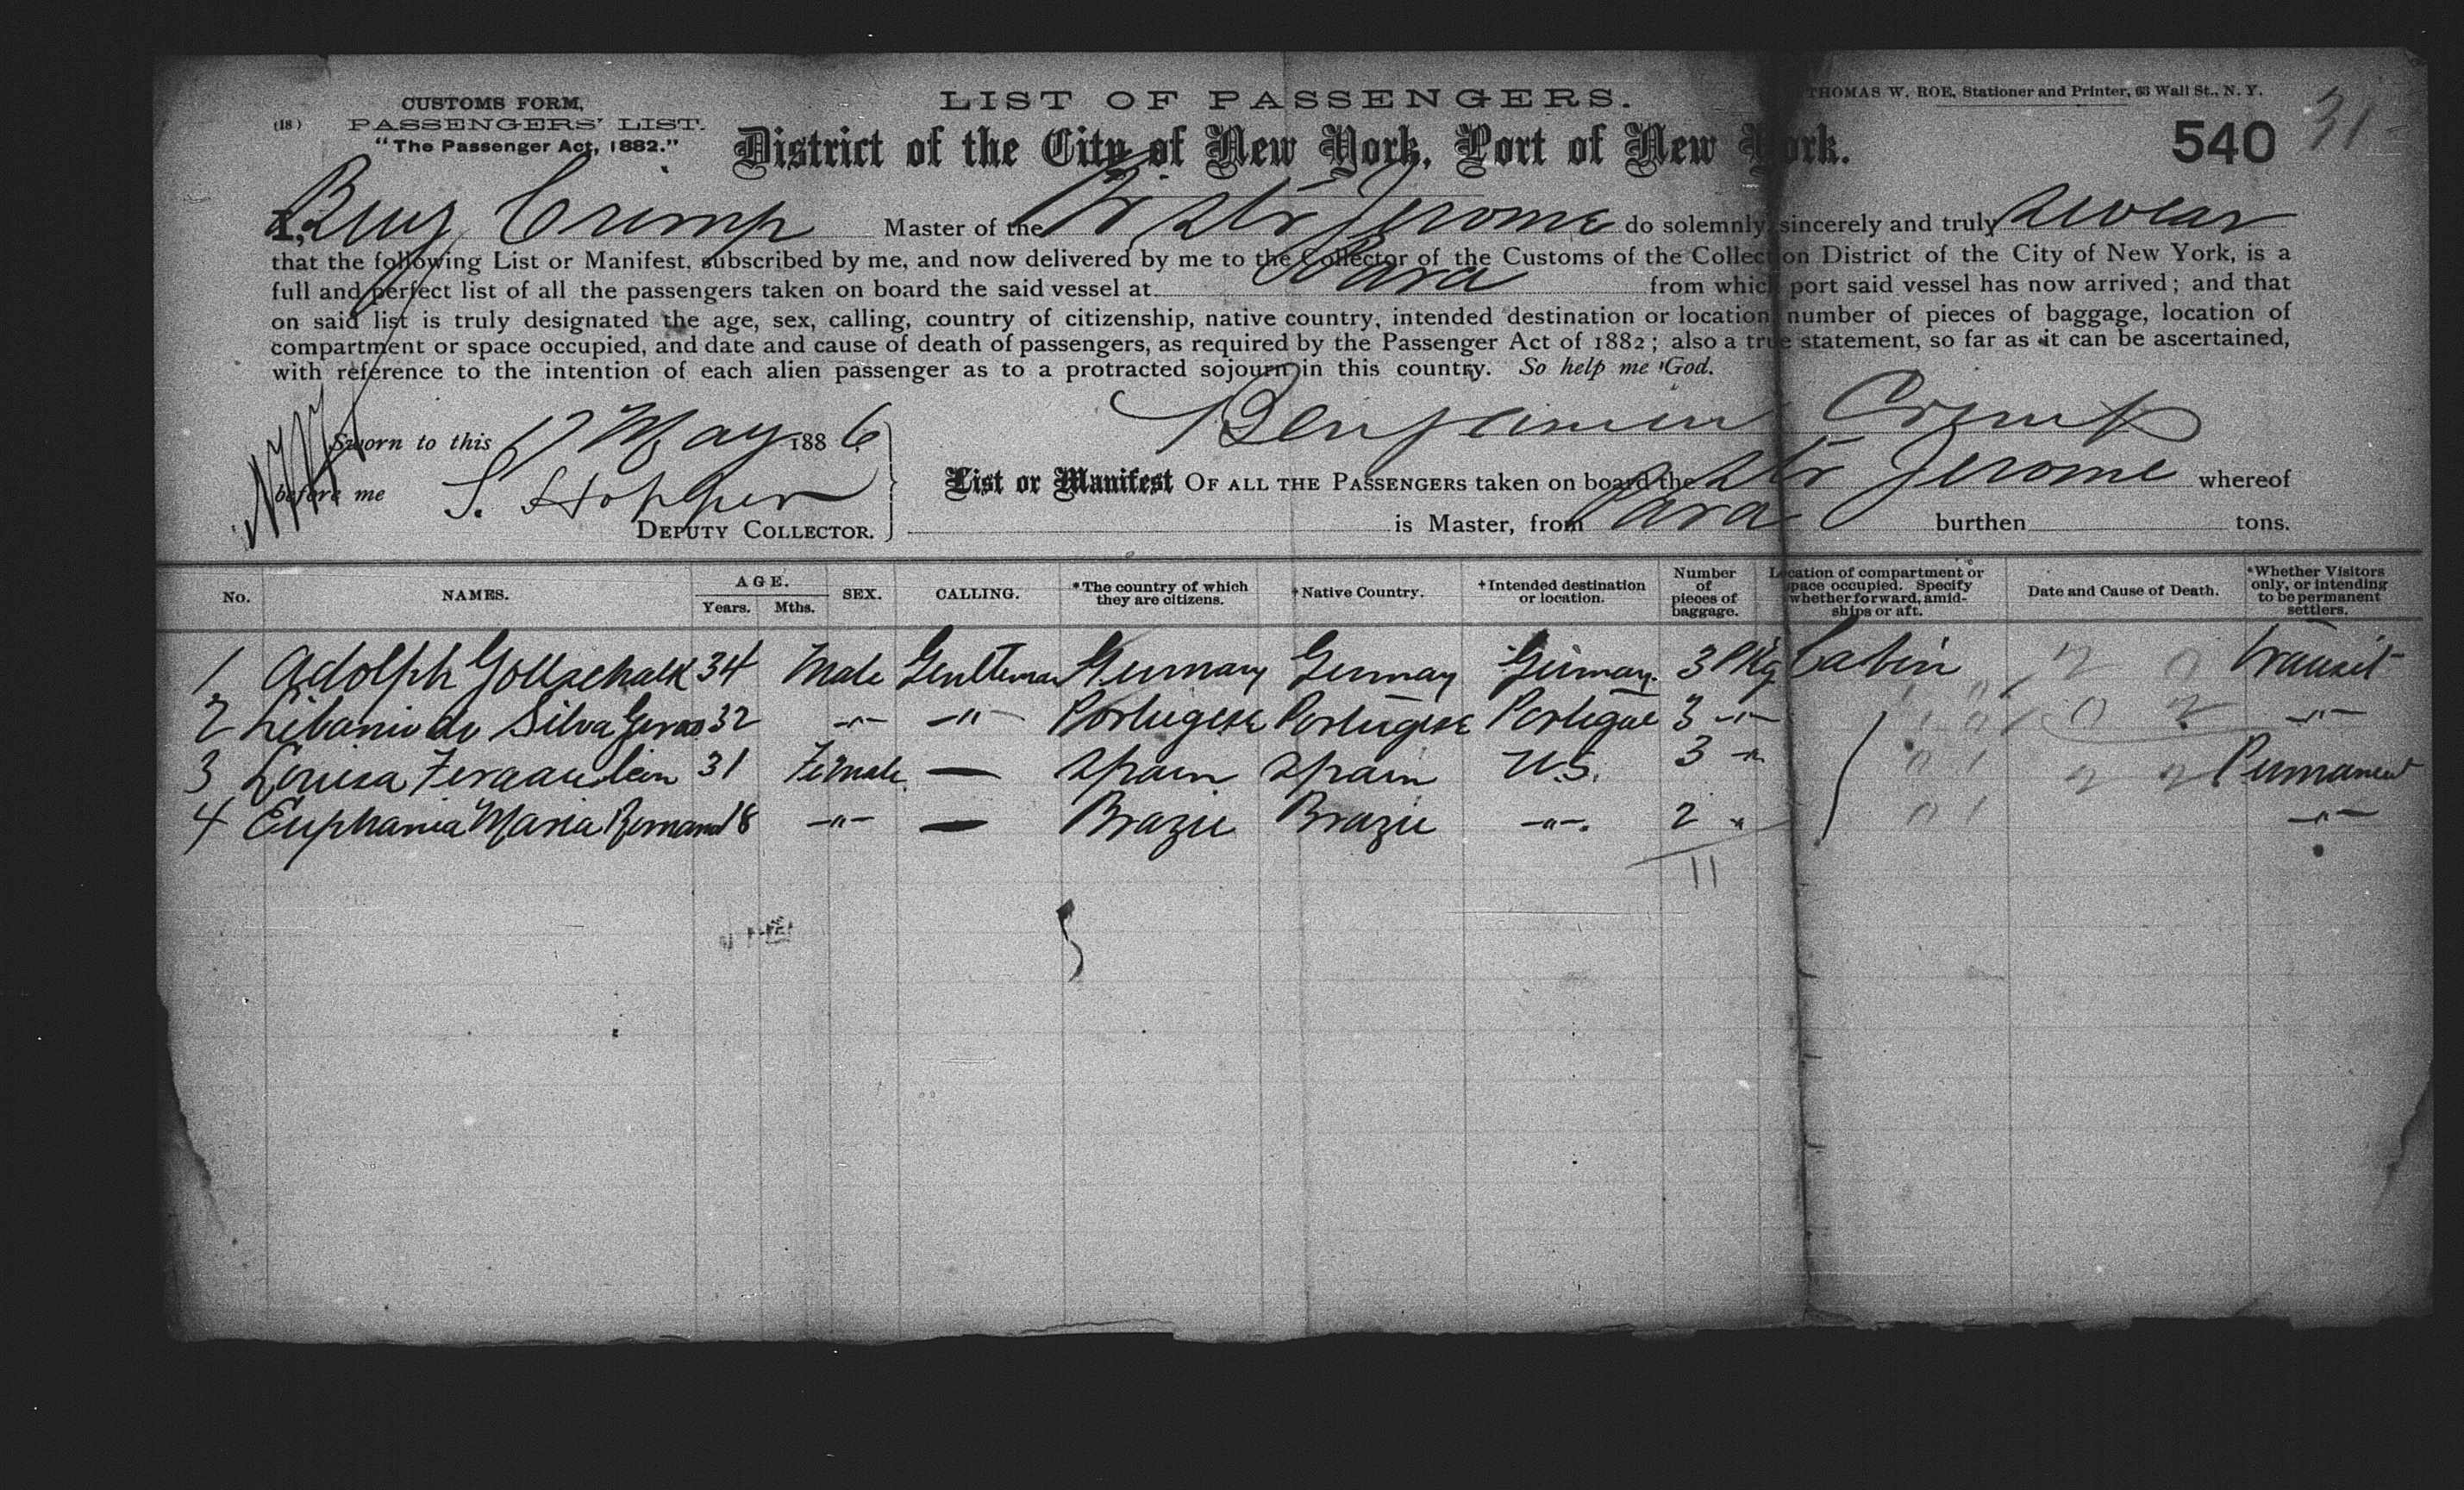 CUSTOMS FORM,
(18) PASSENGERS' LIST.
"The Passenger Act, 1882."
LIST OF PASSENGERS.
THOMAS W. ROE, Stationer and Printer, 63 Wall St., N. Y.
District of the City of New York, Port of New York.
540 31
I, Benj Crimp Master of the Br Str Jerome do solemnly, sincerely and truly swear
that the following List or Manifest, subscribed by me, and now delivered by me to the Collector of the Customs of the Collection District of the City of New York, is a
full and perfect list of all the passengers taken on board the said vessel at Para from which port said vessel has now arrived; and that
on said list is truly designated the age, sex, calling, country of citizenship, native country, intended destination or location, number of pieces of baggage, location of
compartment or space occupied, and date and cause of death of passengers, as required by the Passenger Act of 1882; also a true statement, so far as it can be ascertained,
with reference to the intention of each alien passenger as to a protracted sojourn in this country. So help me God.
Sworn to this 17 May 1886
Benjamin Crimp
before me S. Hopper
DEPUTY COLLECTOR.
List or Manifest OF ALL THE PASSENGERS taken on board the Str Jerome whereof
is Master, from Para burthen tons.
No. NAMES. AGE. Years. Mths. SEX. CALLING. *The country of which they are citizens. *Native Country. †Intended destination or location. Number of pieces of baggage. Location of compartment or space occupied. Specify whether forward, amidships or aft. Date and Cause of Death. *Whether Visitors only, or intending to be permanent settlers.
1 Adolph Gottschalk 34 Male Gentleman Germany Germany Germany 3 Pkg Cabin Transit
2 Libanio da Silva 32 -"- -"- Portugese Portugese Portugal 3 -"- -"-
3 Louisa 31 Female — Spain Spain U.S. 3 " Permanent
4 Euphania Maria 18 -"- — Brazil Brazil -"-. 2 " -"-
11